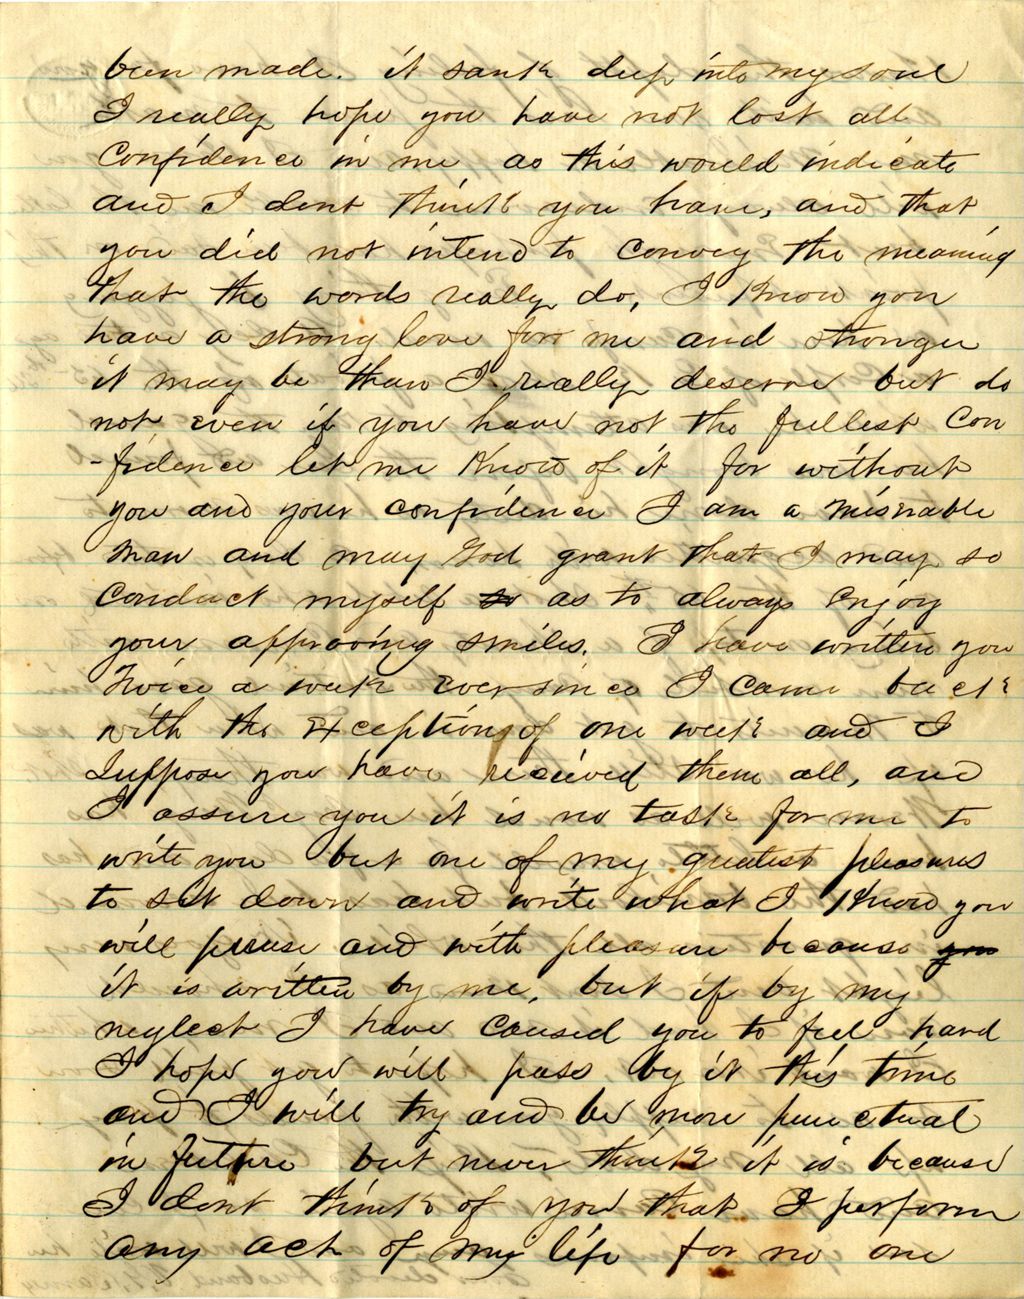 been made. it sank deep into my soul
I really hope you have not lost all
Confidence in me as this would indicate
and I dont think you have, and that
you did not intend to convey the meaning
that the words really do, I know you
have a strong love for me and stronger
it may be than I really deserve but do
not even if you have not the fullest Con
-fidence let me know of it for without
you and your confidence I am a miserable
man and may God grant that I may so
Conduct myself so as to always enjoy
your approving smiles. I have written you
Twice a week ever since I came back
with the Exception of one week and I
Suppose you have recieved them all, and
I assure you it is no task for me to
write you but one of my greatest pleasures
to set down and write what I know you
will peruse and with pleasure because you
it is written by me, but if by my
neglect I have Caused you to feel hard
I hope you will pass by it this time
and I will try and be more punctual
in future but never think it is because
I dont think of you that I perform
any act of my life for no one